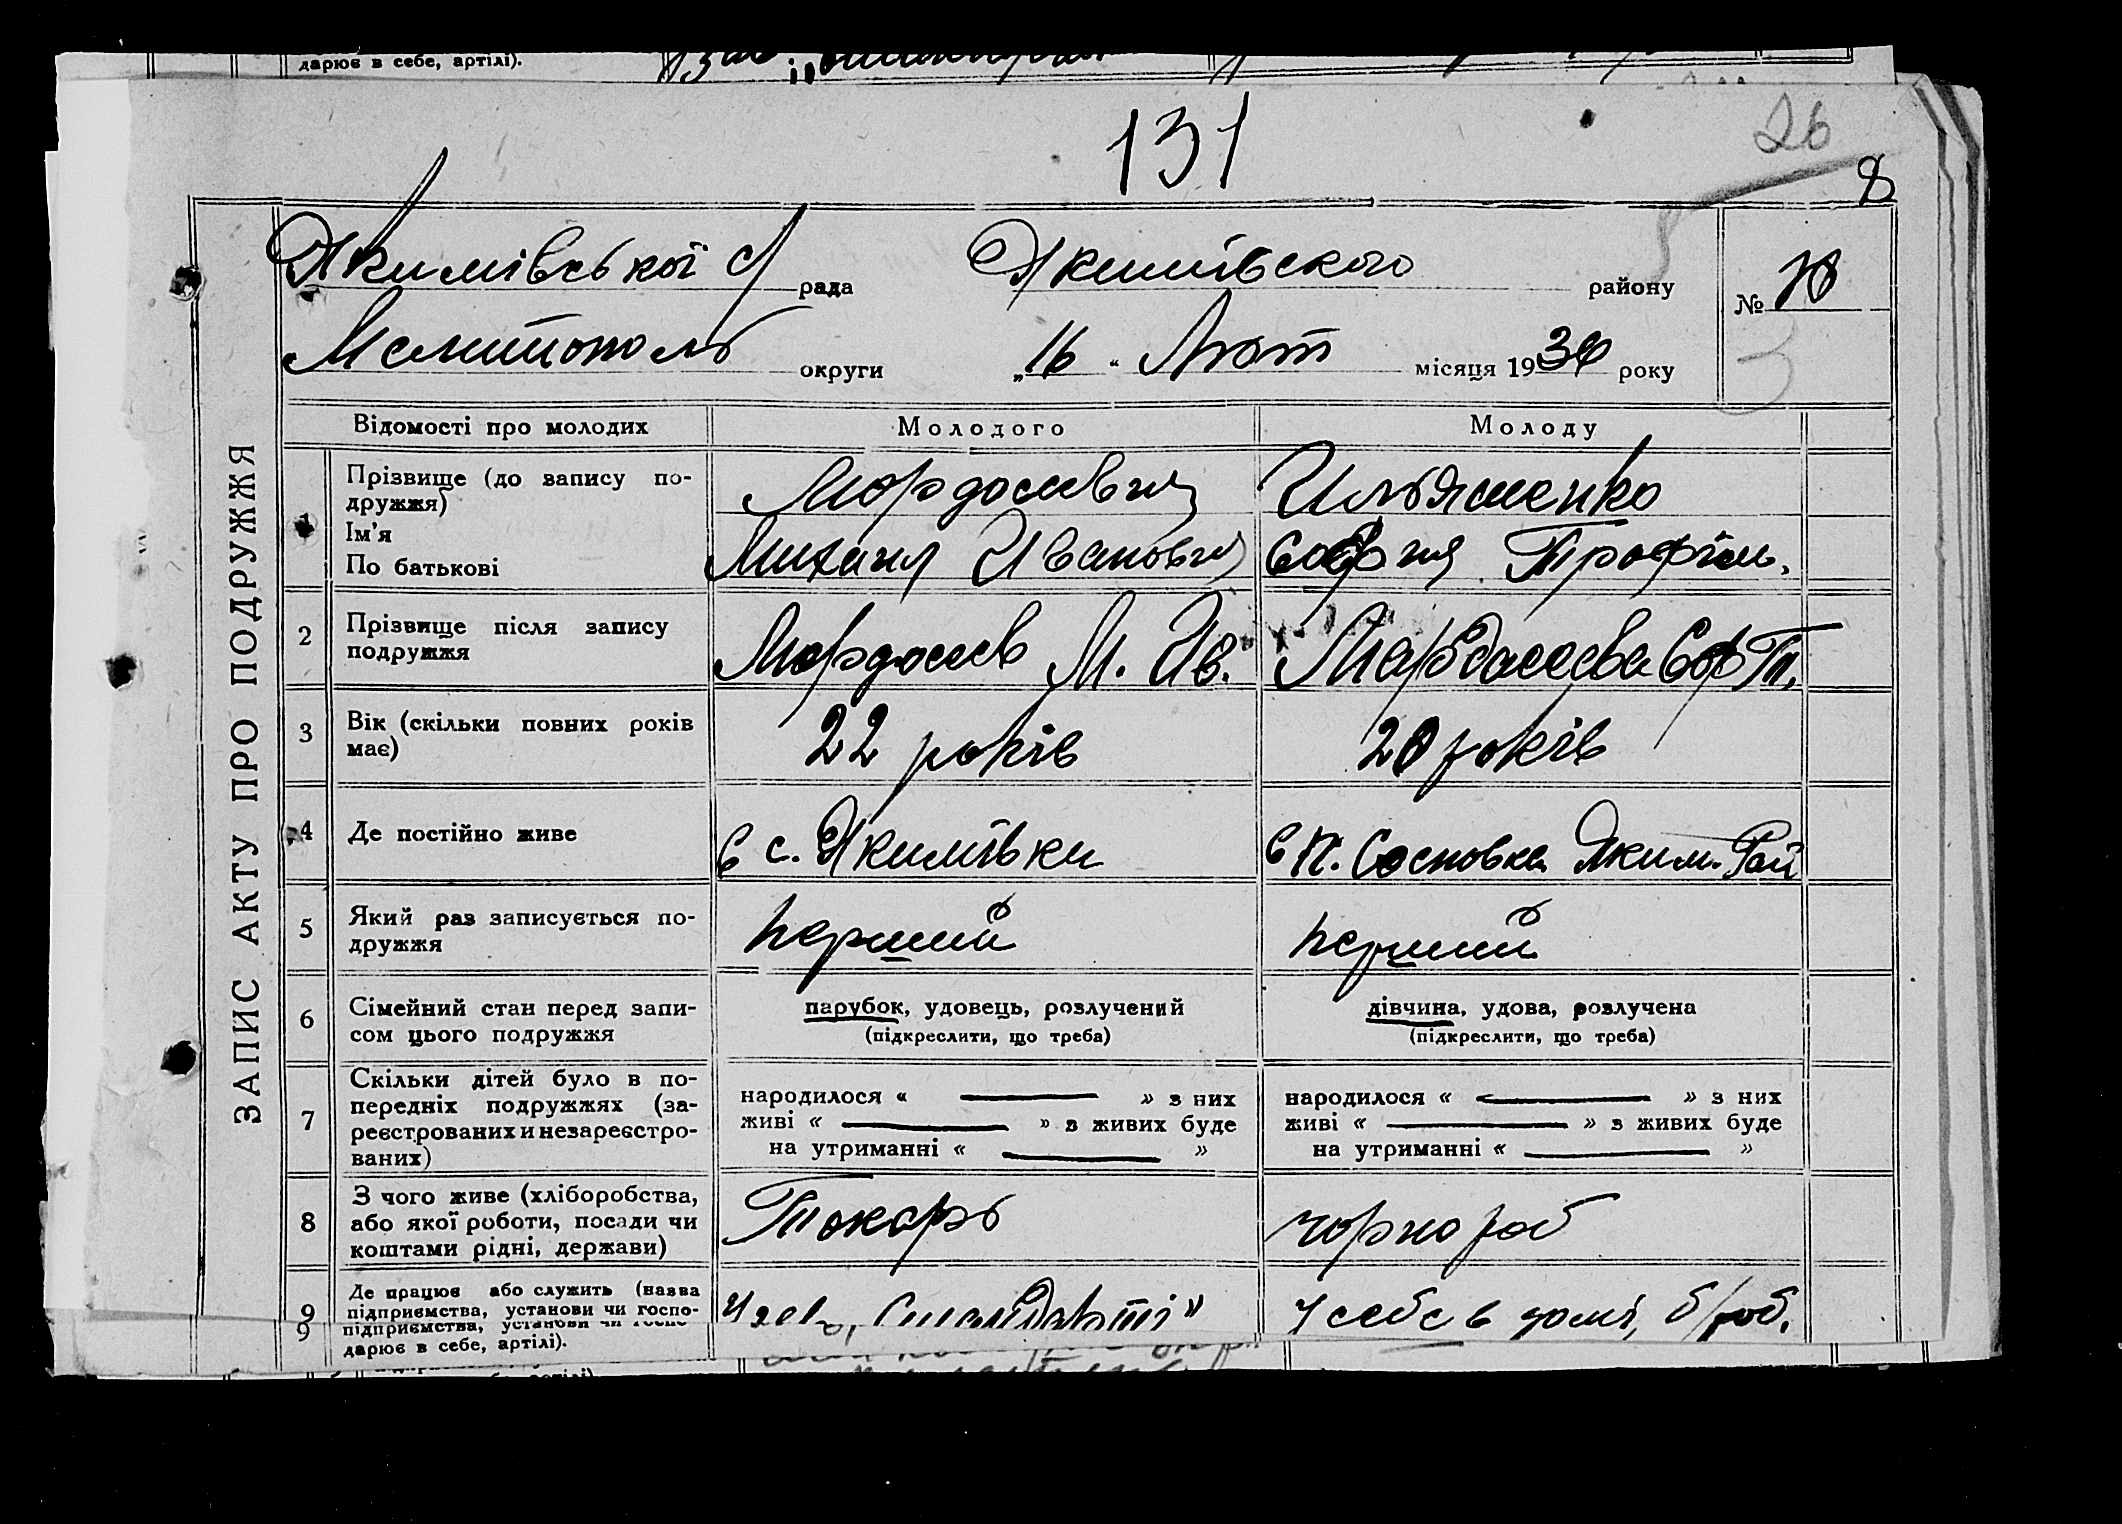 дарює в себе, артілі).
131
26
8
Якимівської с/ рада Якимівского району
№
Мелитополь округи „16“ Лют місяця 1930 року
ЗАПИС АКТУ ПРО ПОДРУЖЖЯ
Відомості про молодих Молодого Молоду
1 Прізвище (до запису по-
дружжя)
Ім'я
По батькові
Ильяшенко
Михаил Иванович София Трофим.
2 Прізвище після запису
подружжя
Мордашев М. Ив. Мардашева Соф Т.
3 Вік (скільки повних років
має)
22 років 20 років
4 Де постійно живе
в с. Якимівки в п. Сосновка Яким. Рай
5 Який раз записується по-
дружжя
перший перший
6 Сімейний стан перед запи-
сом цього подружжя
парубок, удовець, розлучений
(підкреслити, що треба)
дівчина, удова, розлучена
(підкреслити, що треба)
7 Скільки дітей було в по-
передніх подружжях (за-
реєстрованих и незареєстро-
ваних)
народилося « — » з них
живі « — » з живих буде
на утриманні « — »
народилося « — » з них
живі « — » з живих буде
на утриманні « — »
8 З чого живе (хліборобства,
або якої роботи, посади чи
коштами рідні, держави)
Токарь чорнороб
9 Де працює або служить (назва
підприємства, установи чи госпо-
9 підприємства, установи чи госпо-
дарює в себе, артілі).
У себе в домі, б/роб.